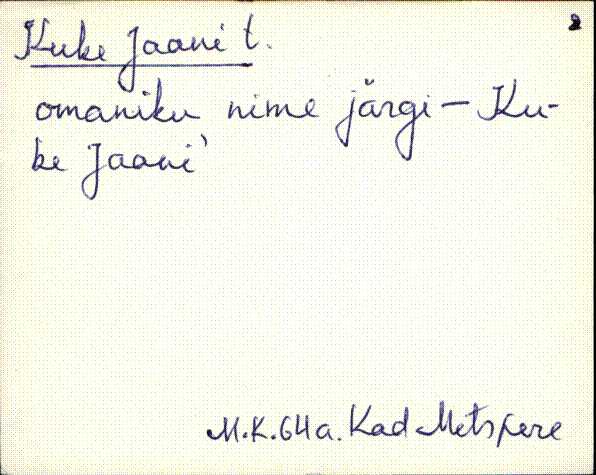 2
Kuke Jaani t.
omaniku nime järgi – Ku-
ke Jaani'
M.K. 64a. Kad Metspere